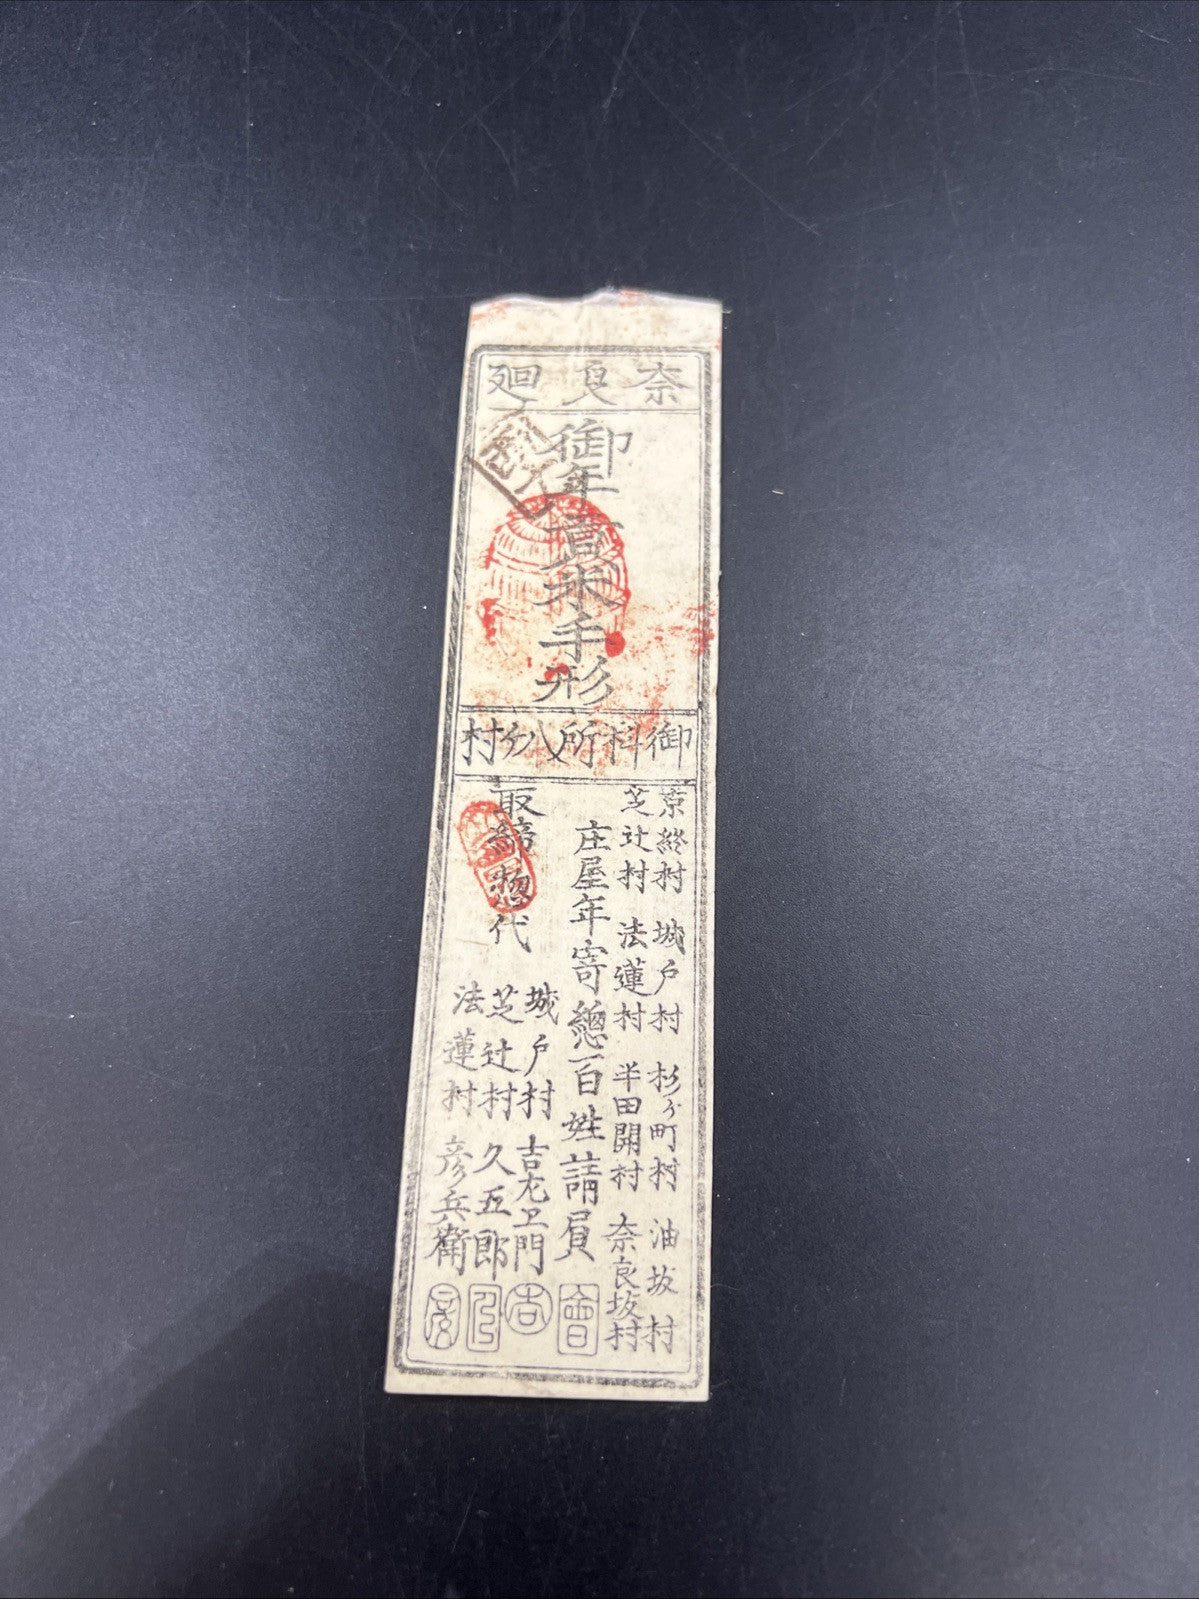 奈良廻
御年貢米手形
御料所八ケ村
京終村 城戸村 杉ケ町村 油坂村
芝辻村 法蓮村 半田開村 奈良坂村
庄屋年寄總百姓請負
取締惣代
城戸村 吉尤卫門
芝辻村 久五郎
法蓮村 彦兵衛
會
吉